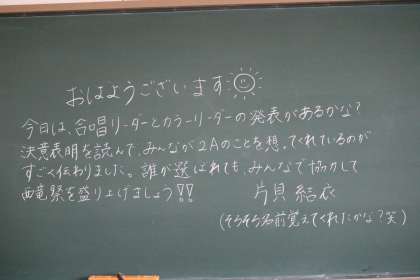 おはようございます
今日は、合唱リーダーとカラーリーダーの発表があるかな?
決意表明を読んで、みんなが2Aのことを想ってくれているのが
すごく伝わりました。誰が選ばれても、みんなで協力して
西竜祭を盛り上げましょう!! 片貝 結衣
(そろそろ名前覚えてくれたかな?笑)